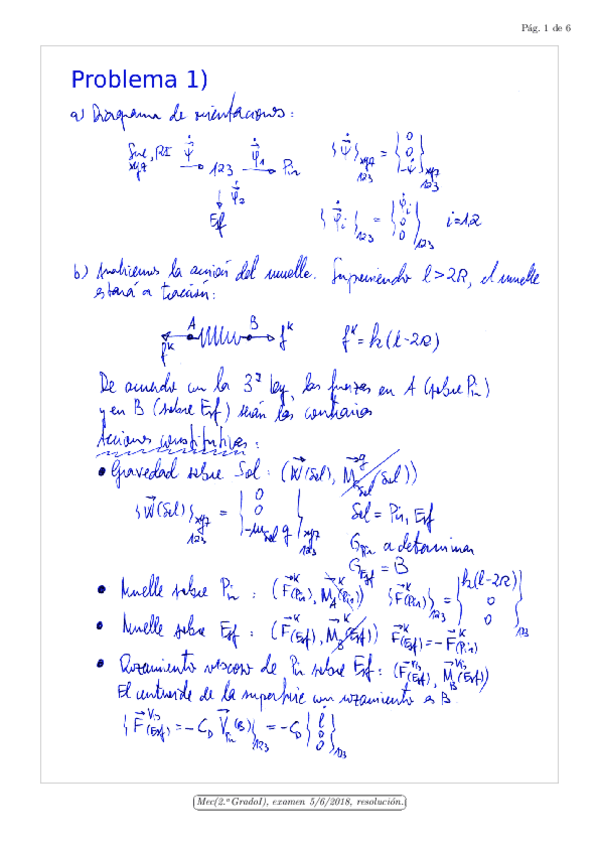 Pág. 1 de 6
Problema 1)
a) Diagrama de orientaciones:
Sue, RI ψ̇ → 123 φ̇₁ → Pin
xyz
φ̇₂
Esf
{ψ̇}xyz 123 = {0 0 -ψ̇}xyz 123
{φ̇i}123 = {φ̇i 0 0}123 i=1,2
b) Analicemos la acción del muelle. Suponiendo l>2R, el muelle
estará a tracción:
A B
f^K f^K f^K = k(l-2R)
De acuerdo con la 3ª ley, las fuerzas en A (sobre Pin)
y en B (sobre Esf) serán las contrarias
Acciones constitutivas:
• Gravedad sobre Sol: (W(Sol), M^g_GSol(Sol))
{W(Sol)}xyz 123 = {0 0 -m_Sol g}xyz 123
Sol = Pin, Esf
G_Pin a determinar
G_Esf = B
• Muelle sobre Pin: (F^K(Pin), M^K_A(Pin)) {F^K(Pin)}123 = {k(l-2R) 0 0}123
• Muelle sobre Esf: (F^K(Esf), M^K_B(Esf)) F^K(Esf) = -F^K(Pin)
• Rozamiento viscoso de Pin sobre Esf: (F^Vis(Esf), M^Vis_B(Esf))
El centroide de la superficie con rozamiento es B
{F^Vis(Esf) = -C_D V_Pin(B)}123 = -C_D {l̇ 0 0}123
Mec(2.º GradoI), examen 5/6/2018, resolución.